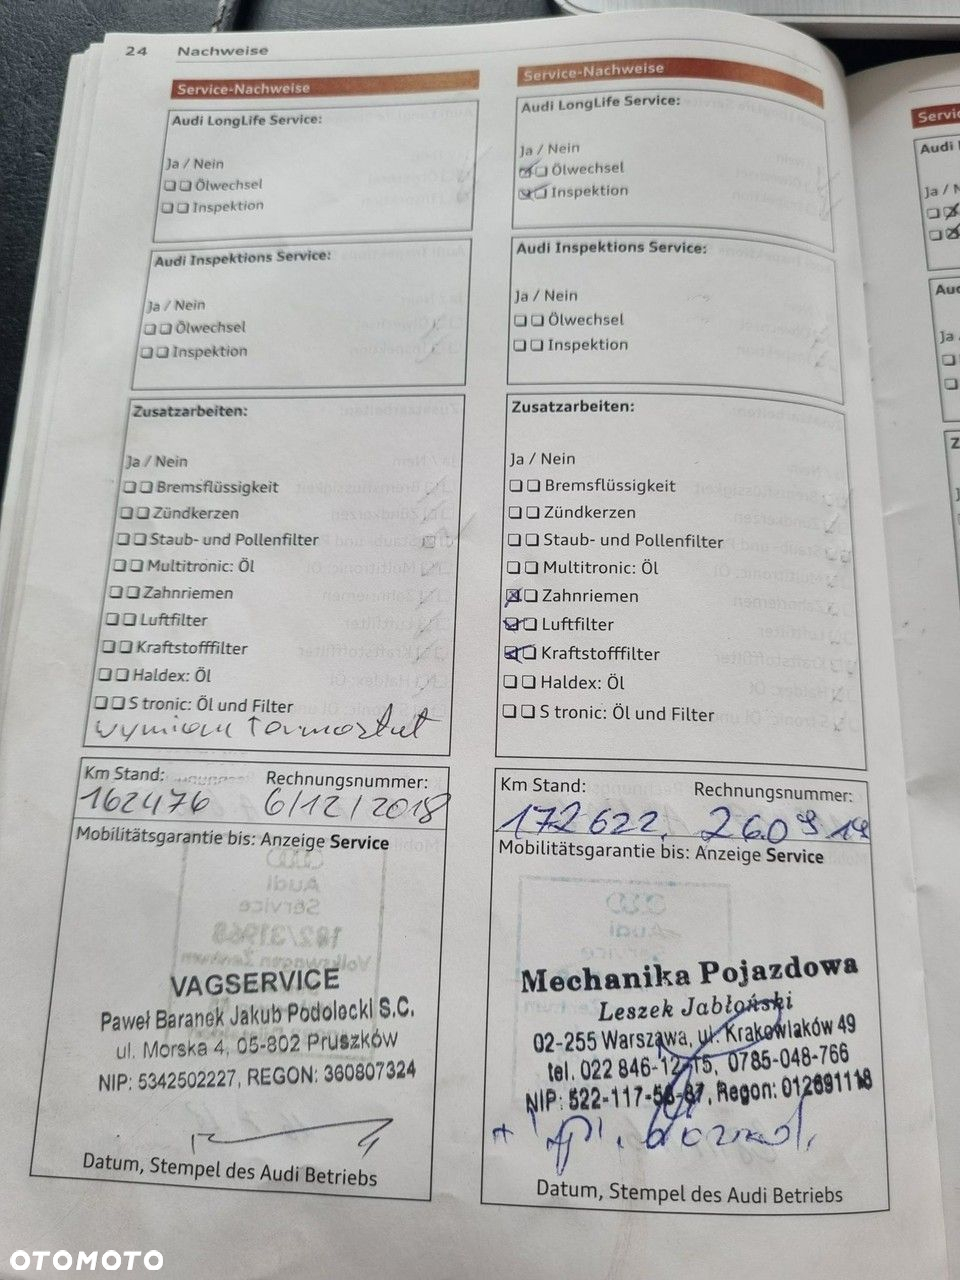 24 Nachweise
Service-Nachweise
Audi LongLife Service:
Ja / Nein
Ölwechsel
Inspektion
Audi Inspektions Service:
Ja / Nein
Ölwechsel
Inspektion
Zusatzarbeiten:
Ja / Nein
Bremsflüssigkeit
Zündkerzen
Staub- und Pollenfilter
Multitronic: Öl
Zahnriemen
Luftfilter
Kraftstofffilter
Haldex: Öl
S tronic: Öl und Filter
Km Stand: Rechnungsnummer:
162476 6/12/2018
Mobilitätsgarantie bis: Anzeige Service
VAGSERVICE
Paweł Baranek Jakub Podolecki S.C.
ul. Morska 4, 05-802 Pruszków
NIP: 5342502227, REGON: 360807324
Datum, Stempel des Audi Betriebs
Service-Nachweise
Audi LongLife Service:
Ja / Nein
Ölwechsel
Inspektion
Audi Inspektions Service:
Ja / Nein
Ölwechsel
Inspektion
Zusatzarbeiten:
Ja / Nein
Bremsflüssigkeit
Zündkerzen
Staub- und Pollenfilter
Multitronic: Öl
Zahnriemen
Luftfilter
Kraftstofffilter
Haldex: Öl
S tronic: Öl und Filter
Km Stand: Rechnungsnummer:
172622,
Mobilitätsgarantie bis: Anzeige Service
Mechanika Pojazdowa
Leszek Jabłoński
02-255 Warszawa, ul. Krakowiaków 49
tel. 022 846-12-15, 0785-048-766
Regon: 012691118
Datum, Stempel des Audi Betriebs
Audi
OTOMOTO